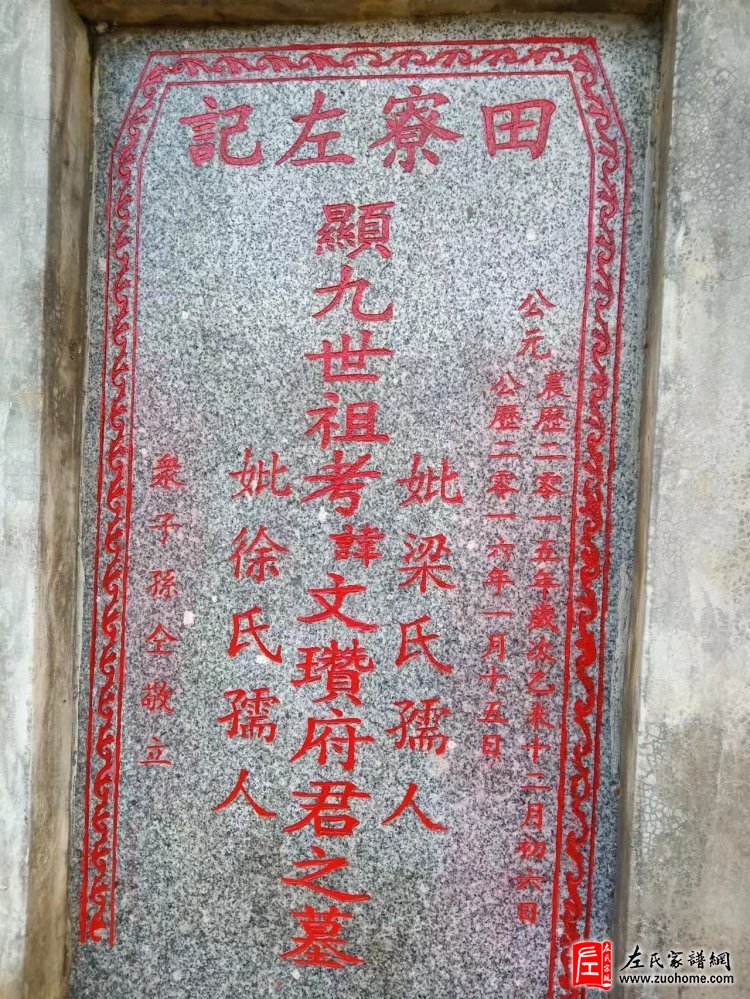 田寮左記
公元
農歷二零一五年歲次乙未十二月初六日
公歷二零一六年一月十五日
妣梁氏孺人
顯九世祖考諱文瓚府君之墓
妣徐氏孺人
衆子孫仝敬立
左氏家譜網
www.zuohome.com